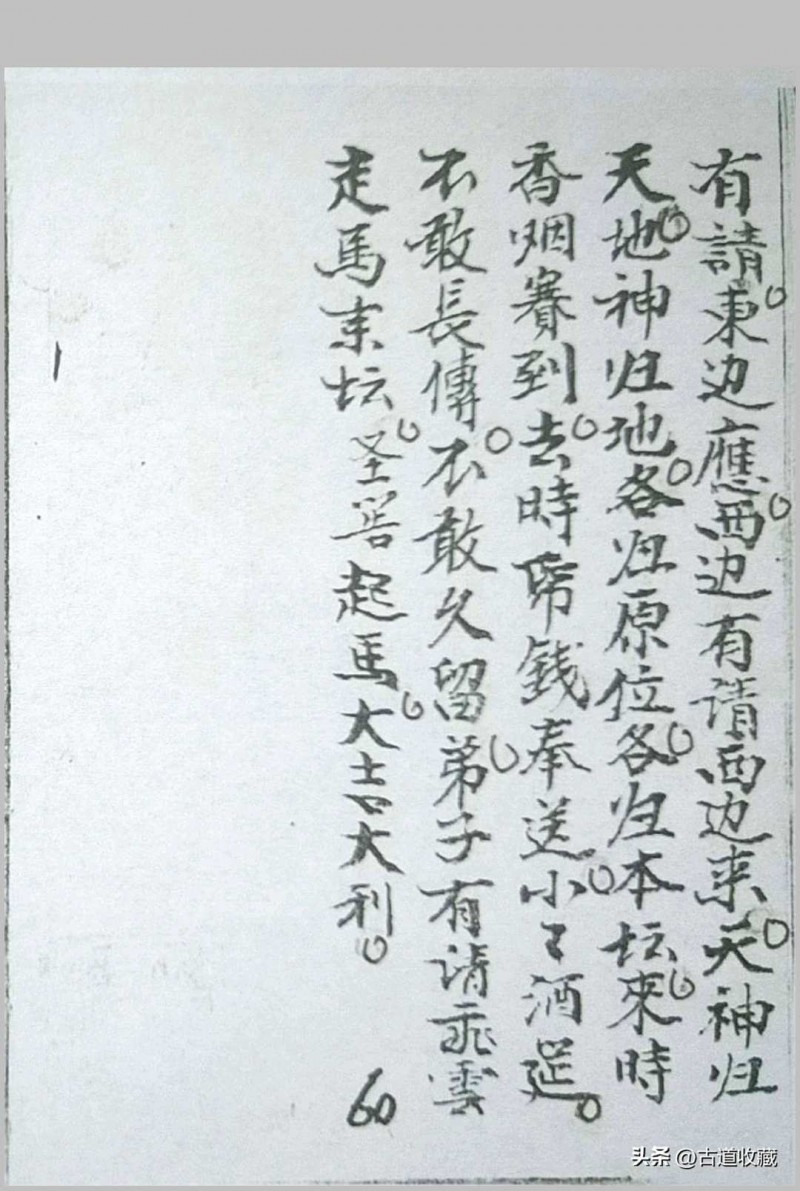 有請東边應西边有请西边来天神归
天地神归地各归原位各归本坛來時
香烟賽到去時帋錢奉送小々酒筵
不敢長傳不敢久留弟子有請乖雲
走馬来坛圣筶起馬大吉大利
60
头条 @古道收藏